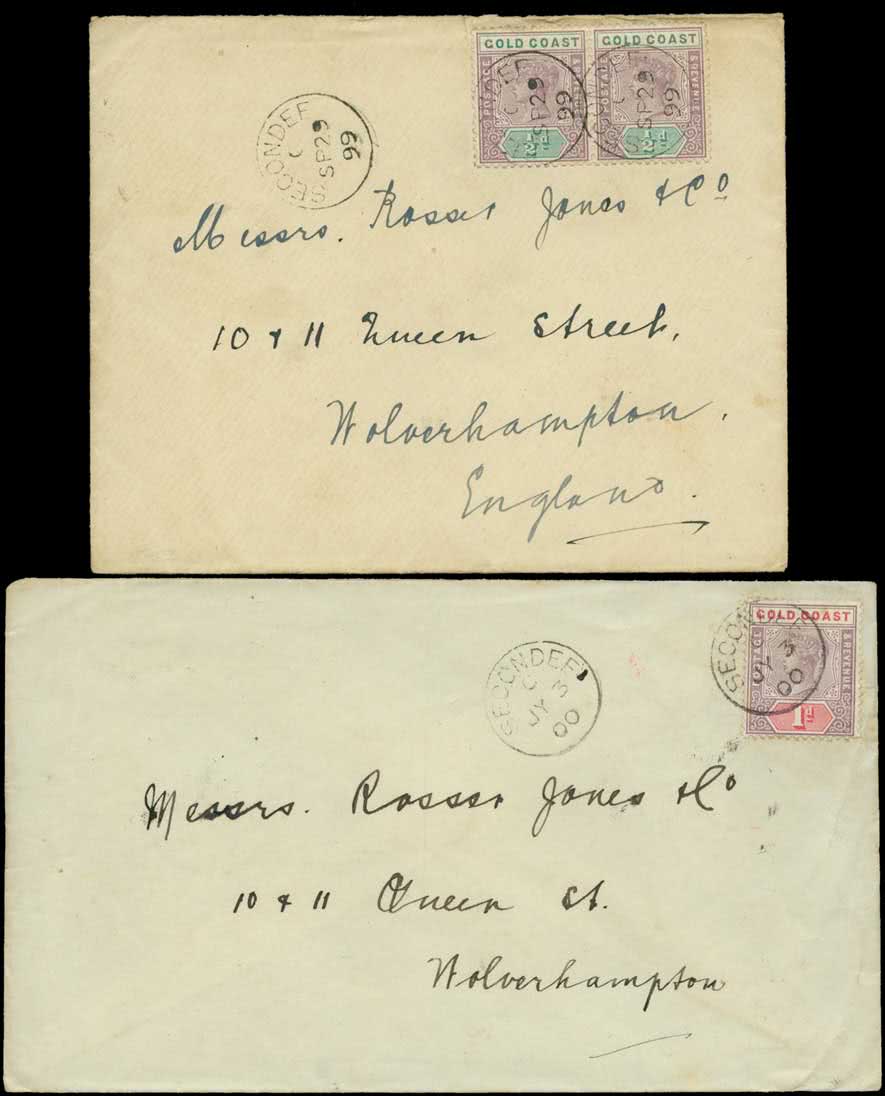 GOLD COAST
POSTAGE & REVENUE
½d
GOLD COAST
POSTAGE & REVENUE
½d
SECONDEE
C
SP 29
99
SECONDEE
C
SP 29
99
SECONDEE
C
SP 29
99
Messrs. Rosser Jones & Co
10 & 11 Queen Street,
Wolverhampton,
England.
GOLD COAST
POSTAGE & REVENUE
1d
SECONDEE
C
JY 3
00
SECONDEE
JY 3
00
Messrs. Rosser Jones & Co
10 & 11 Queen St.
Wolverhampton